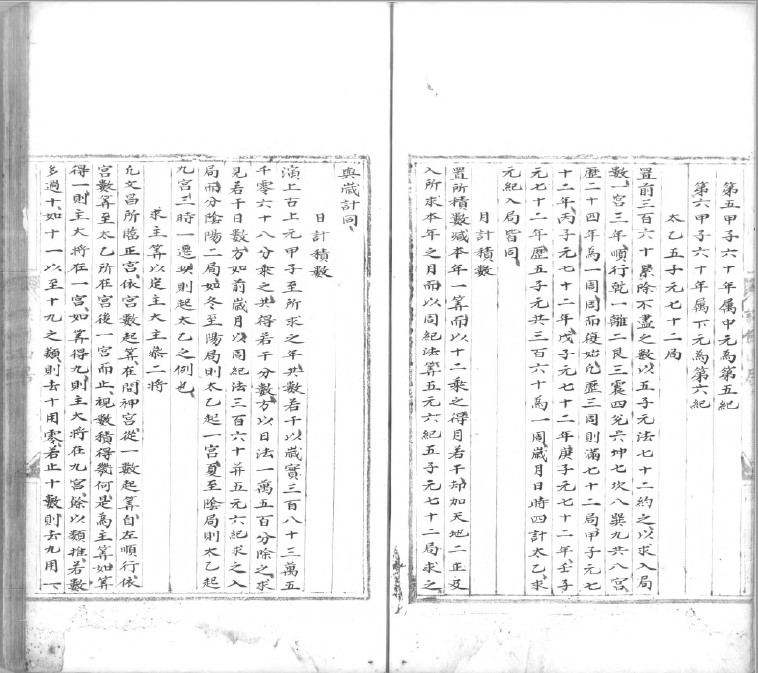 第五甲子六十年属中元為第五紀
第六甲子六十年属下元為第六紀
太乙五子元七十二局
置前三百六十累除不盡之數以五子元法七十二約之以求入局
數一宮三年順行乾一離二艮三震四兌六坤七坎八巽九共八宮
歷二十四年為一周周而復始凡歷三周則滿七十二局甲子元七
十二年丙子元七十二年戊子元七十二年庚子元七十二年壬子
元七十二年歷五子元共三百六十為一周歲月日時四計太乙求
元紀入局皆同
月計積數
置所積數減本年一算而以十二乘之得月若干却加天地二正及
入所求本年之月而以周紀法算五元六紀五子元七十二局求之
與歲計同
日計積數
演上古上元甲子至所求之年共數若干以歲實三百八十三萬五
千零六十八分乘之共得若干分數方以日法一萬五百分除之求
見若干日數方如前歲月以周紀法三百六十并五元六紀求之入
局而分陰陽二局如冬至陽局則太乙起一宮夏至陰局則太乙起
九宮三時一遷此則起太乙之例也
求主算以定主大主參二將
凡文昌所臨正宮依宮數起算在間神宮從一數起算自在順行依
宮數算至太乙所在宮後一宮而止視數積得幾何是為主算如算
得一則主大將在一宮如算得九則主大將在九宮餘以類推若數
多過十如十一以至十九之類則去十用零若止十數則去九用一